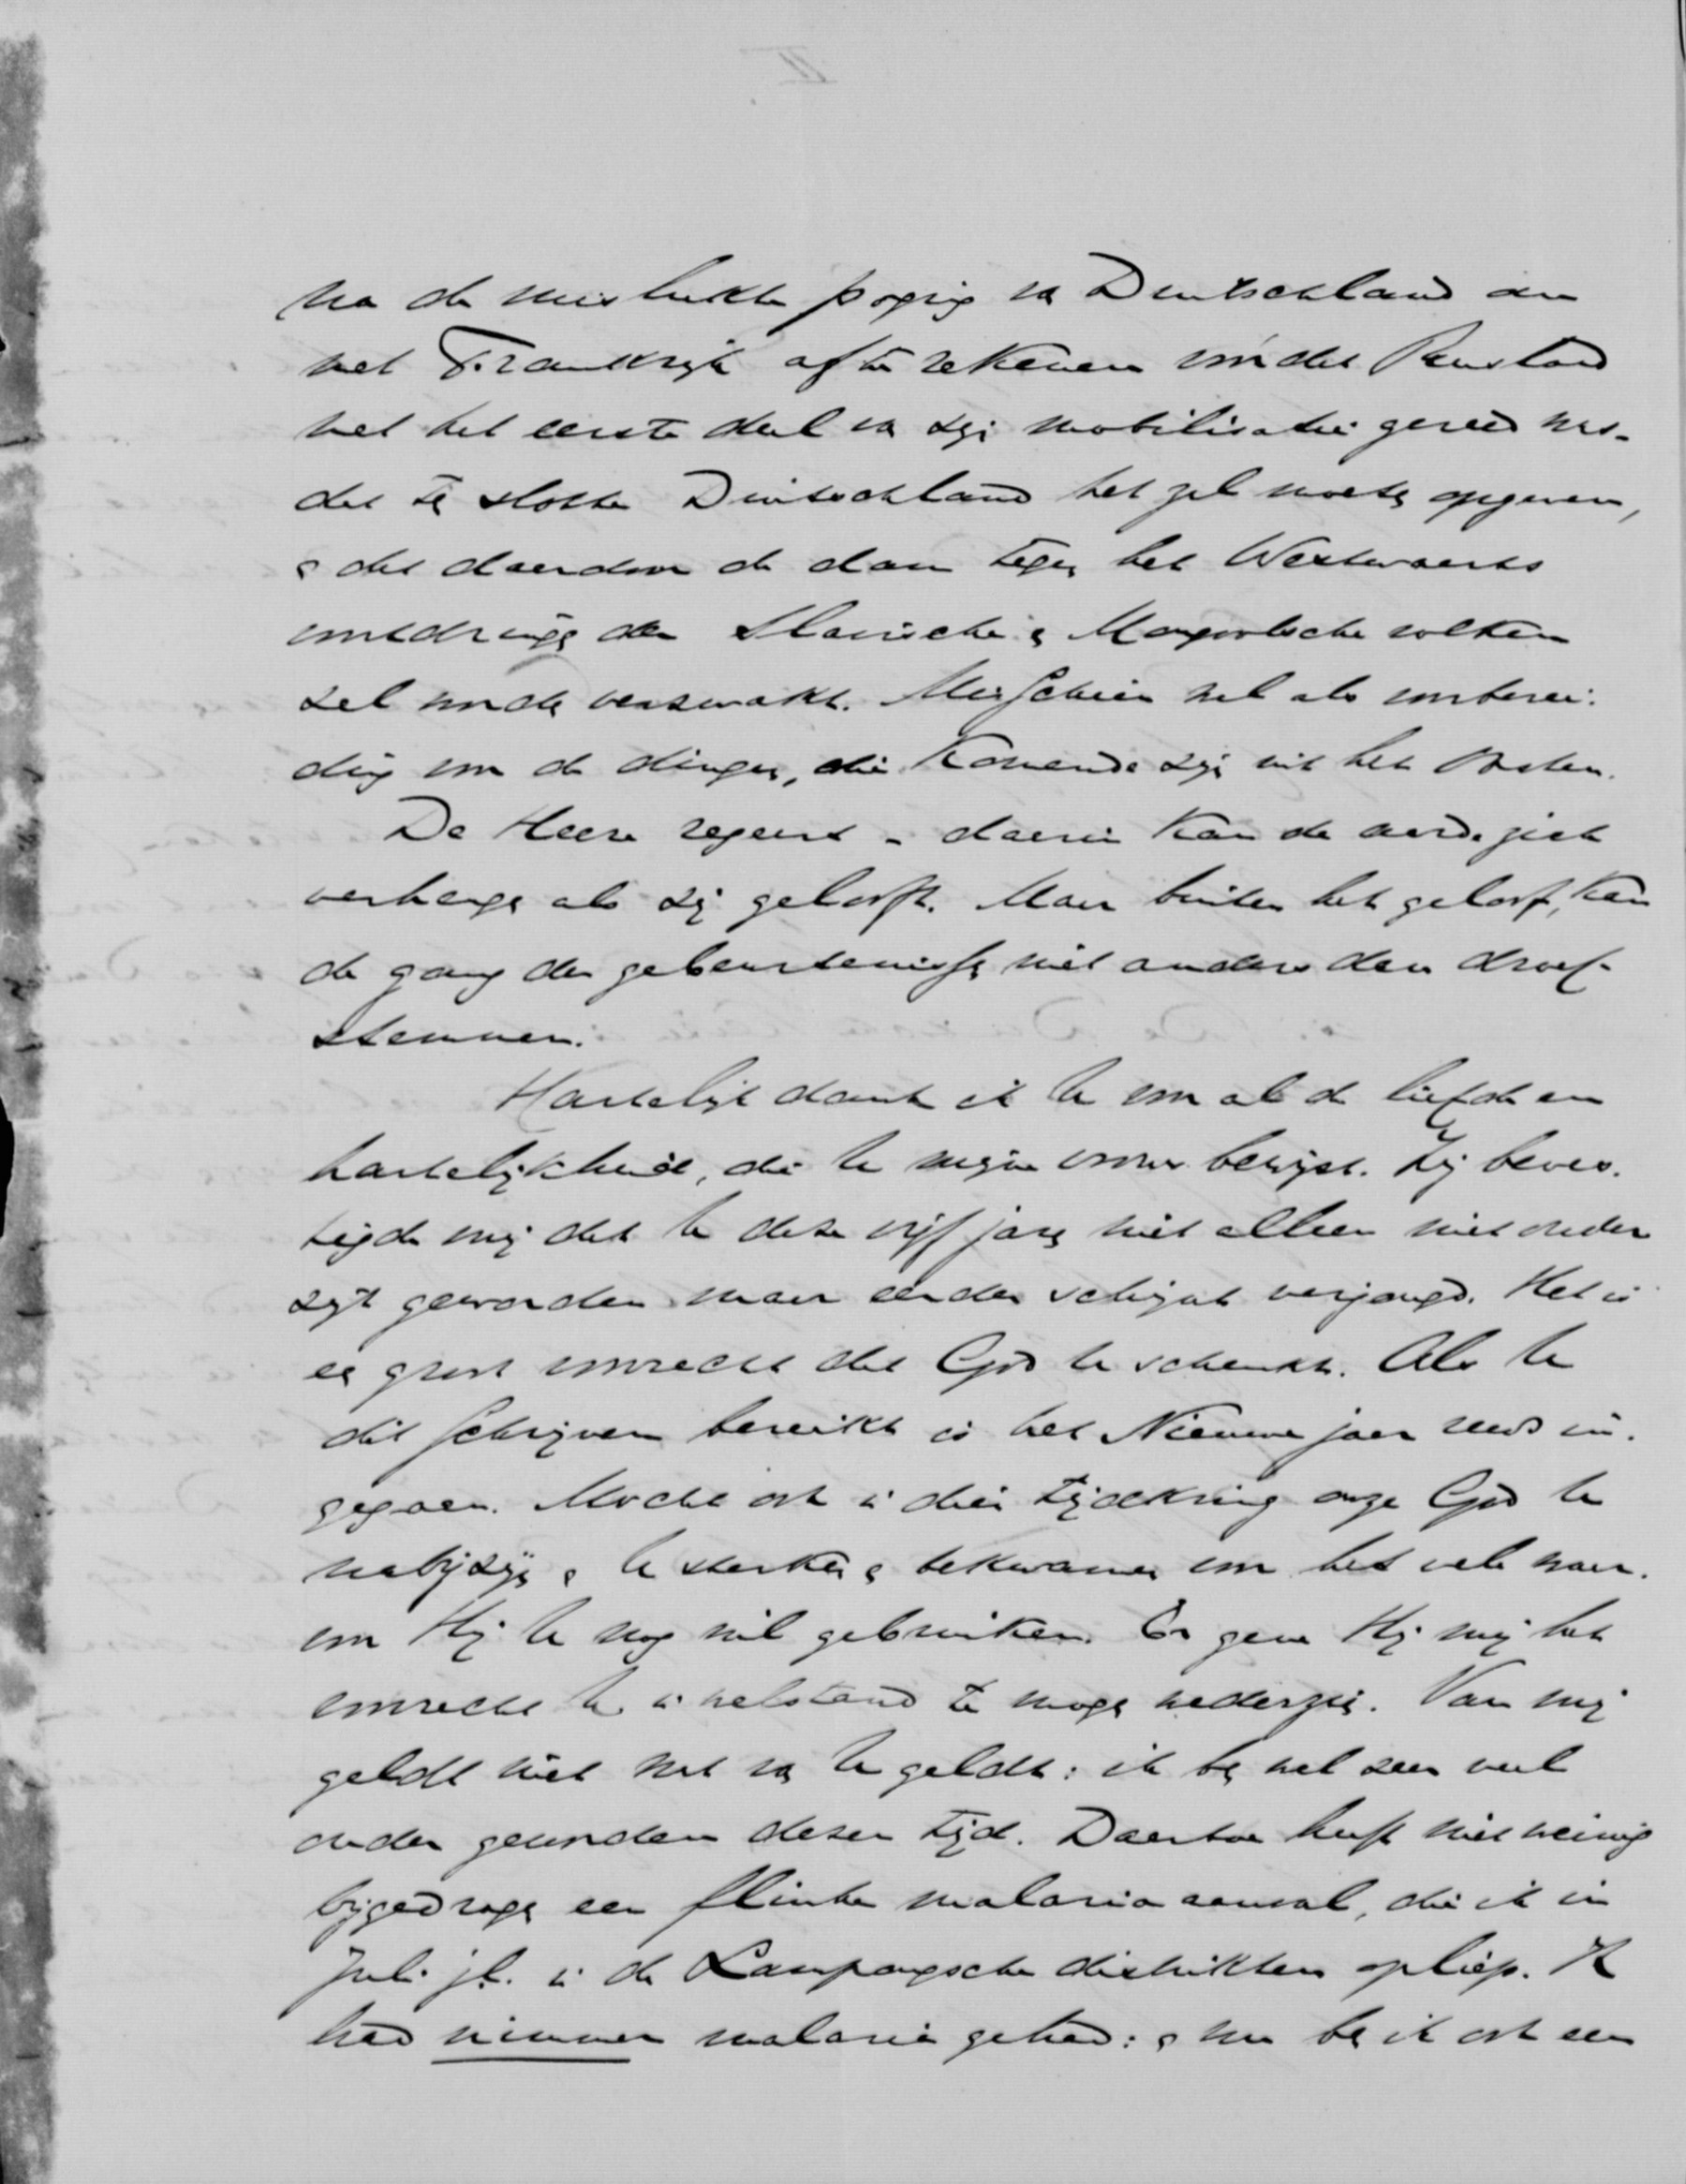 na de mislukte poging van Duitschland om
met Frankrijk af te rekenen vóórdat Rusland
met het eerste deel van zijn mobilisatie gereed was.
dat ten slotte Duitschland het zal moeten opgeven,
en dat daardoor de dam tegen het Westwaarts
voortdringen der Slavische en Mongoolsche volken
zal worden verzwakt. Misschien wel als voorberei-
ding voor de dingen, die komende zijn uit het Oosten.
De Heere regeert - daarin kan de aarde zich
verheugen als zij gelooft. Maar buiten het geloof, kan
de gang der gebeurtenissen niet anders dan droef
stemmen.
Hartelijk dank ik U voor al de liefde en
hartelijkheid, die U mijn vrouw bewijst. Zij beves-
tigde mij dat U deze vijf jaren niet alleen niet ouder
zijt geworden maar eerder schijnt verjongd. Het is
een groot voorrecht dat God U schenkt. Als U
dit schrijven bereikt is het Nieuwe jaar reeds in-
gegaan. Moche ook in dien tijdkring onze God U
nabij zijn en U sterken en bekwamen voor het vele waar-
voor Hij U nog wil gebruiken. En geve Hij mij het
voorrecht U in welstand te mogen wederzien. Van mij
geldt niet wat van U geldt: ik ben wel zeer veel
ouder geworden dezer tijd. Daartoe heeft niet weinig
bijgedragen een flinke malaria aanval, die ik in
Juli jl. in de Lampongsche distrikten opliep. Ik
had nimmer malaria gehad: en nu ben ik ook een